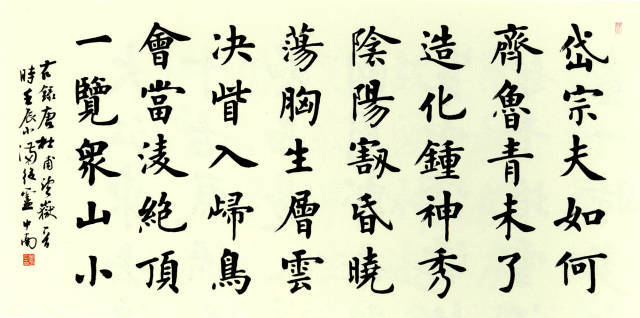 岱宗夫如何
齊魯青未了
造化鍾神秀
陰陽割昏曉
蕩胸生層雲
决眥入歸鳥
會當淩絕頂
一覽衆山小
右錄唐杜甫望嶽一首
時壬辰小滿後 中南